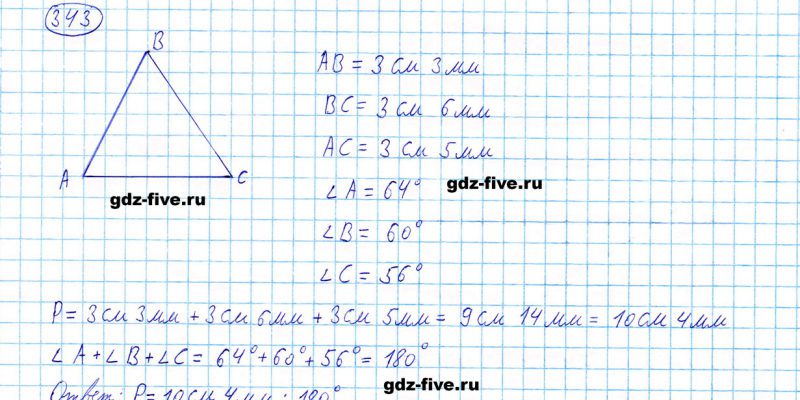 343
B
A
C
gdz-five.ru
AB = 3 см 3 мм
BC = 3 см 6 мм
AC = 3 см 5 мм
∠A = 64°
gdz-five.ru
∠B = 60°
∠C = 56°
P = 3 см 3 мм + 3 см 6 мм + 3 см 5 мм = 9 см 14 мм = 10 см 4 мм
∠A + ∠B + ∠C = 64° + 60° + 56° = 180°
Ответ: P = 10 см 4 мм; 180°
gdz-five.ru